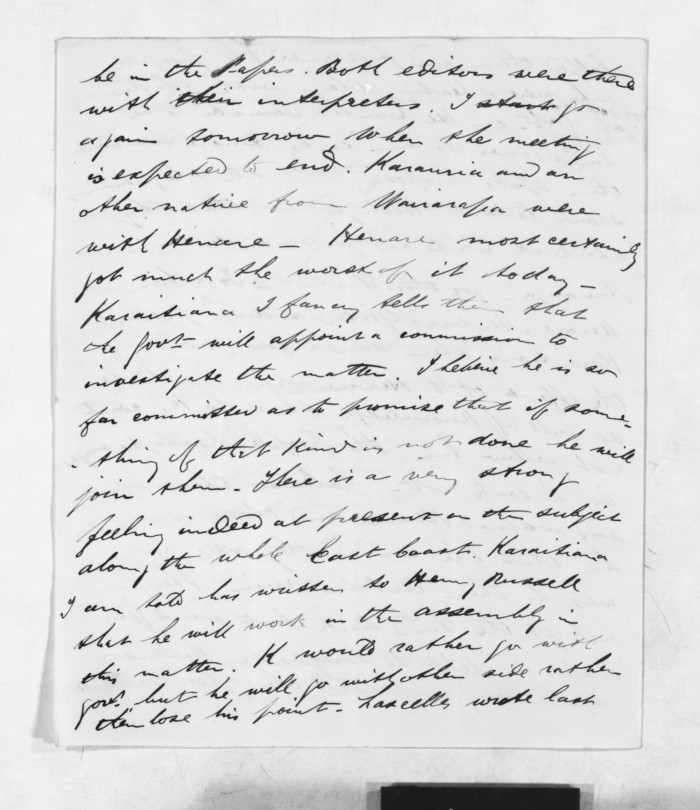 be in the Papers. Both editors were there
with their interpreters. I start go
again tomorrow, when the meeting
is expected to end. Karauria and an
other native from Wairarapa were
with Henare – Henare most certainly
got much the worst of it today –
Karaitiana I fancy tells them that
the govt. will appoint a commission to
investigate the matter. I believe he is so
far committed as to promise that if some-
- thing of that kind is not done he will
join them – There is a very strong
feeling indeed at present on the subject
along the whole East Coast. Karaitiana
I am told has written to Henry Russell
that he will work in the assembly in
this matter. K would rather go with
govt. but he will go with other side rather
than lose his point – Lascelles wrote last